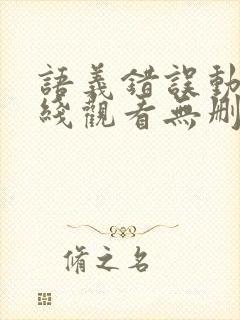 語義錯誤動
綫觀看無刪
脩之名